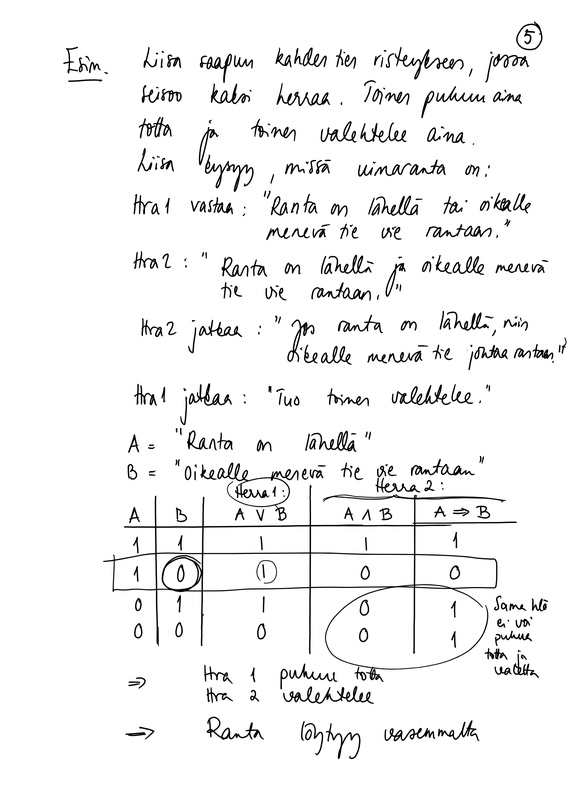 5
Esim. Liisa saapuu kahden tien risteykseen, jossa
seisoo kaksi herraa. Toinen puhuu aina
totta ja toinen valehtelee aina.
Liisa kysyy, missä uimaranta on:
Hra1 vastaa: "Ranta on lähellä tai oikealle
menevä tie vie rantaan."
Hra2: "Ranta on lähellä ja oikealle menevä
tie vie rantaan."
Hra2 jatkaa: "Jos ranta on lähellä, niin
oikealle menevä tie johtaa rantaan."
Hra1 jatkaa: "Tuo toinen valehtelee."
A = "Ranta on lähellä"
B = "Oikealle menevä tie vie rantaan"
Herra1: Herra2:
A B A ∨ B A ∧ B A ⇒ B
1 1 1 1 1
1 0 1 0 0
0 1 1 0 1
0 0 0 0 1
Sama hlö
ei voi
puhua
totta ja
valetta
⇒ Hra 1 puhuu totta
Hra 2 valehtelee
→ Ranta löytyy vasemmalta